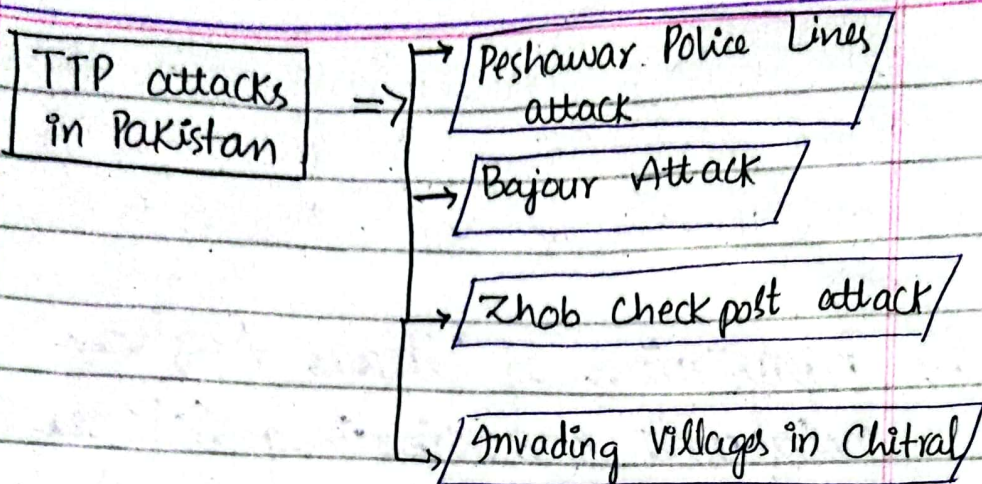 TTP attacks
in Pakistan
=>
Peshawar. Police Lines
attack
Bajour Attack
Zhob Check post attack
Invading Villages in Chitral